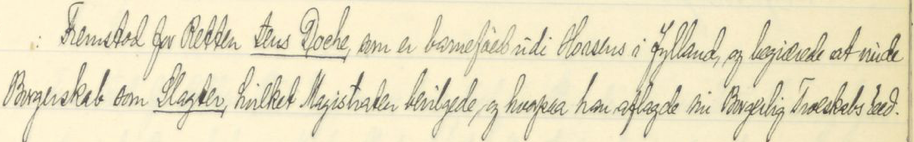 : Fremstod for Retten Jens Doche, som er barneföed udi Horsens i Jylland, og begiærede at vinde
Borgerskab som Slagter, hvilket Magistraten bevilgede, og hvorpaa han aflagde sin Borgerlig Troeskabs Eed.